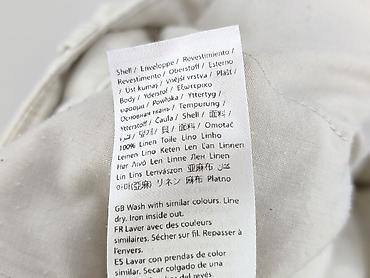 Shell / Enveloppe / Revestimiento /
Revestimento / Oberstoff / Esterno
/ Üst kumaş / Vnější vrstva / Plášť /
Body / Yderstof / Εξωτερικό
ύφασμα / Powłoka / Yttertyg /
Основная ткань / Tempurung /
Ytterstoff / Căula / Shell / 面料 /
/ 겉감 / 貝 / 面料 / Omotač
100% Linen Toile Lino Linho
Leinen Lino Keten Len Ľan Linnen
Hør Λινό Len Linne Лен Linen
Lin Lins Lenvászon 亚麻布 كتان
아마(亞麻) リネン 麻布 Platno
GB Wash with similar colours. Line
dry. Iron inside out.
FR Laver avec des couleurs
similaires. Sécher sur fil. Repasser à
l'envers.
ES Lavar con prendas de color
similar. Secar colgado de una